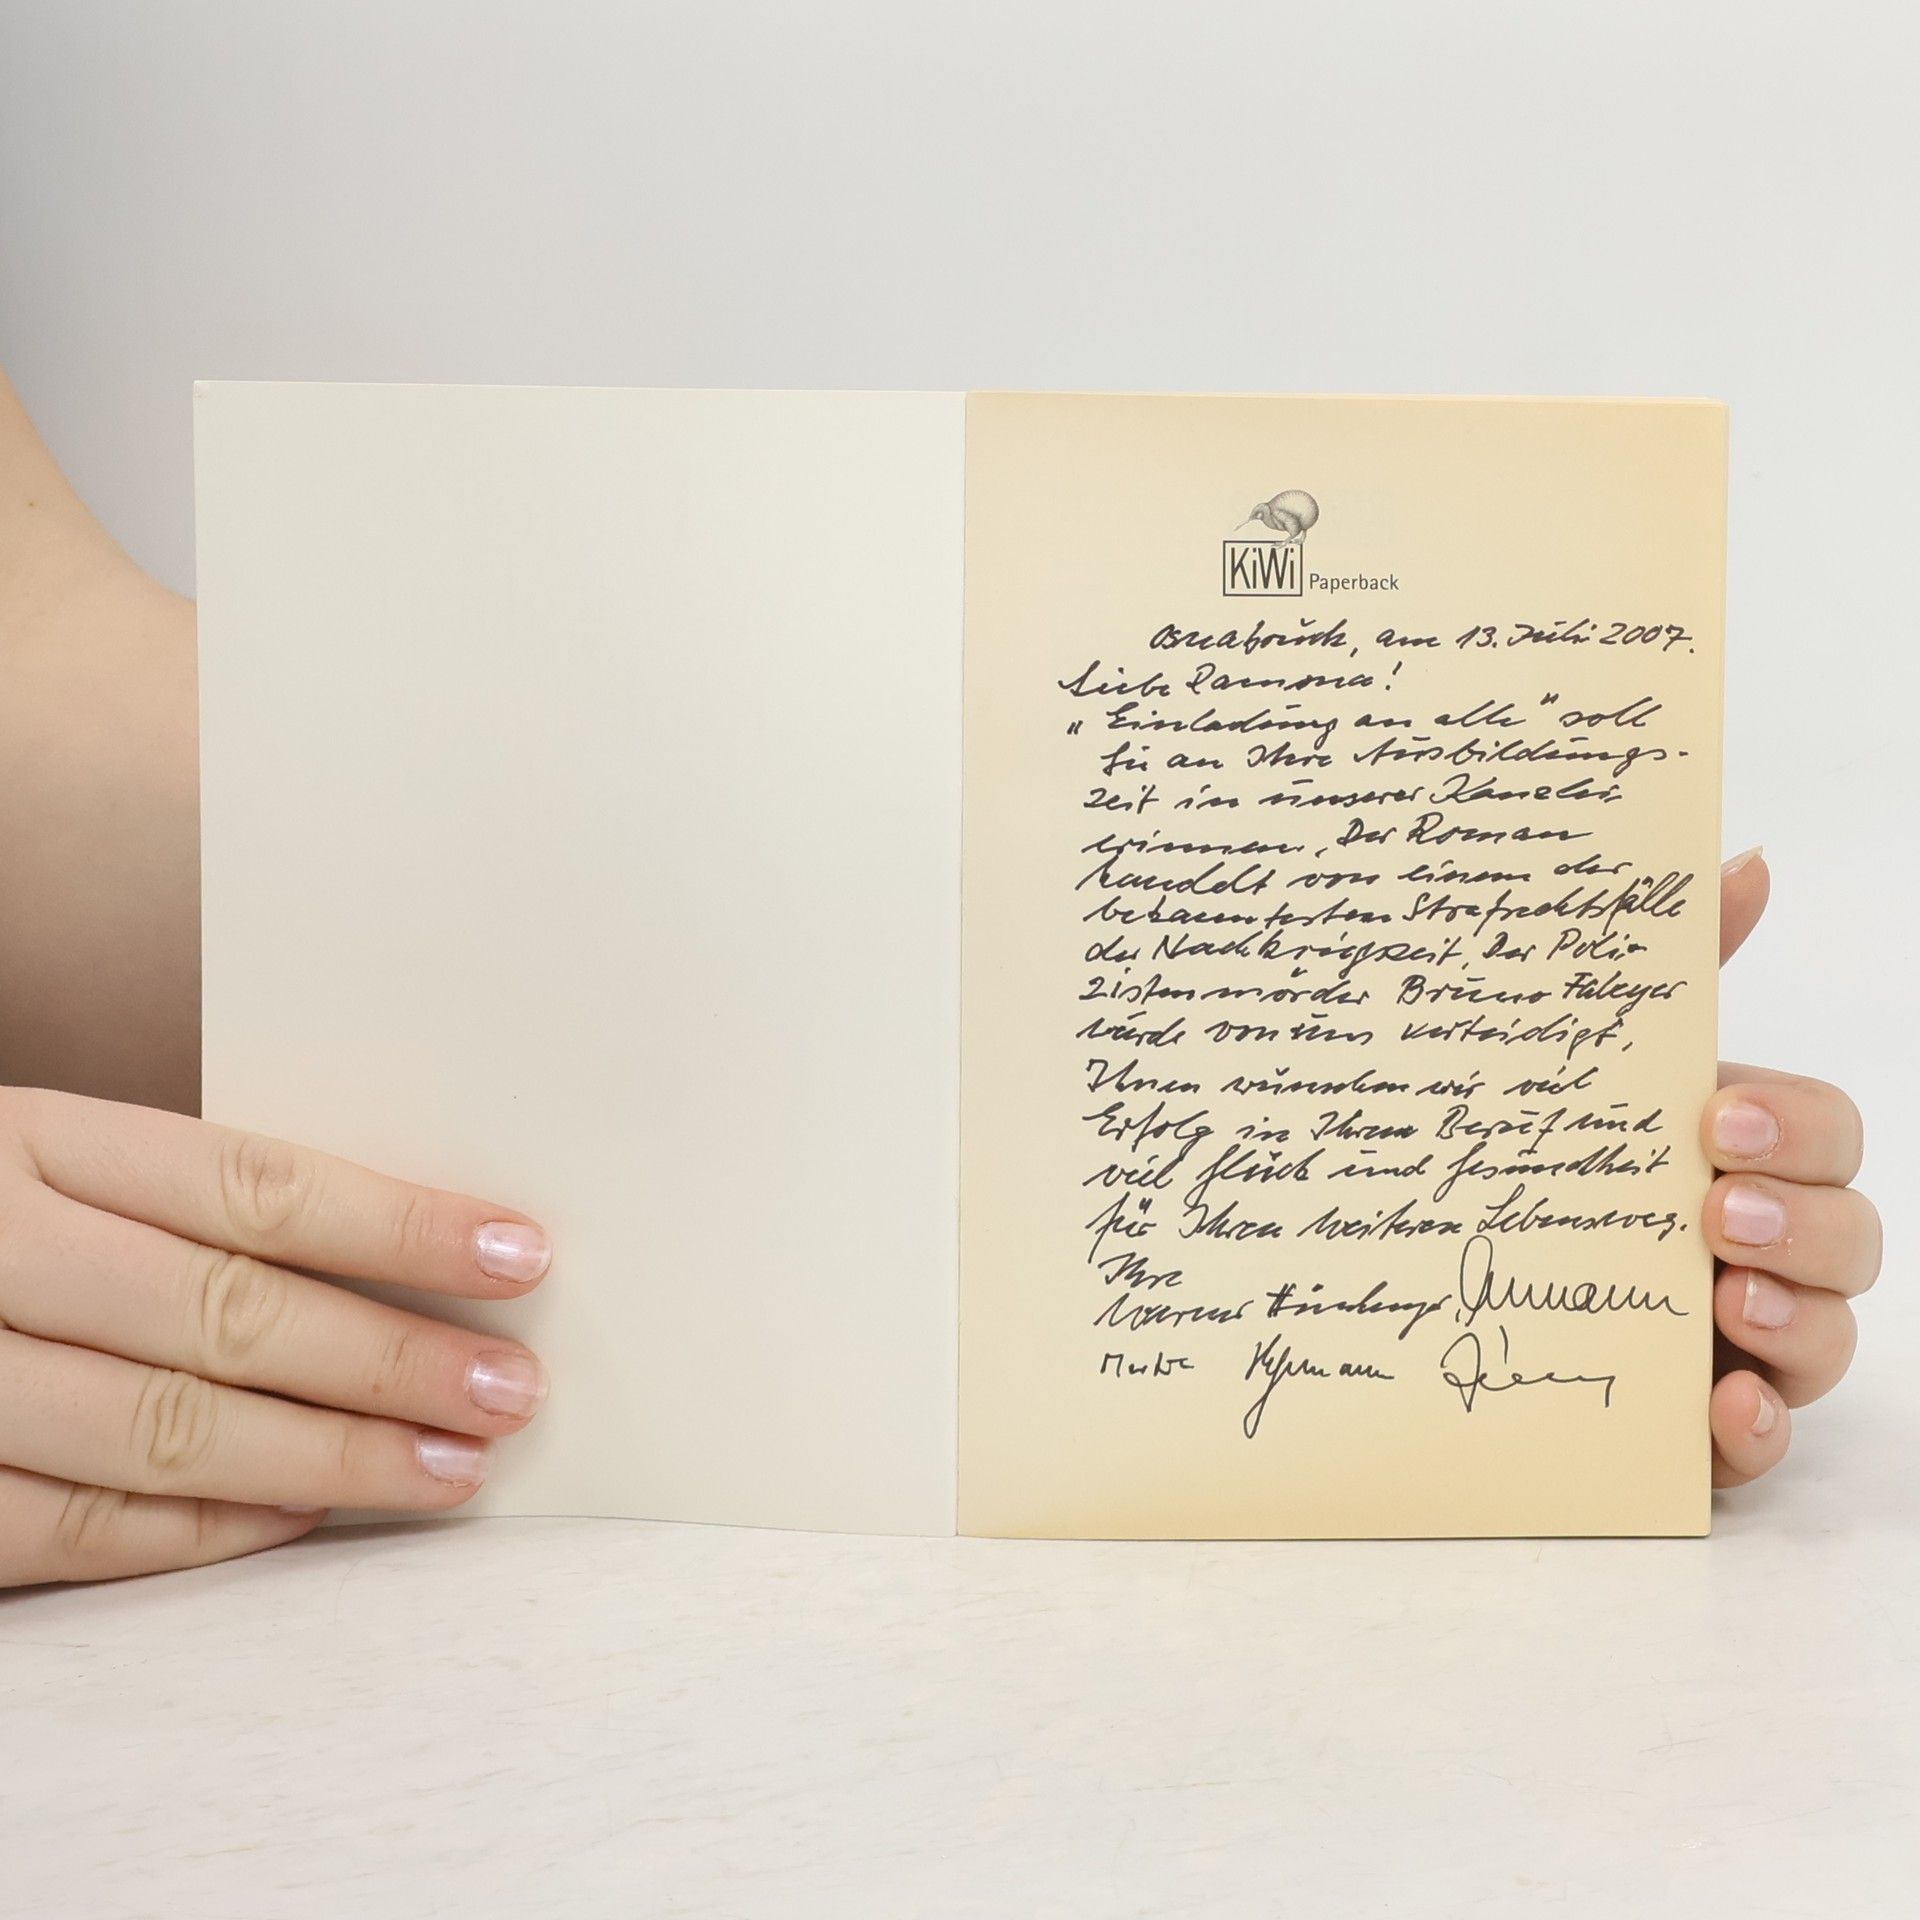 KiWi Paperback
Osnabrück, am 13. Juli 2007.
Liebe Ramona!
„Einladung an alle" soll
Sie an Ihre Ausbildungs-
zeit in unserer Kanzlei
erinnern. Der Roman
handelt von einem der
bekanntesten Strafrechtsfälle
der Nachkriegszeit. Der Poli-
zistenmörder Bruno Fabeyer
wurde von uns verteidigt.
Ihnen wünschen wir viel
Erfolg in Ihrem Beruf und
viel Glück und Gesundheit
für Ihren weiteren Lebensweg.
Ihre
Werner